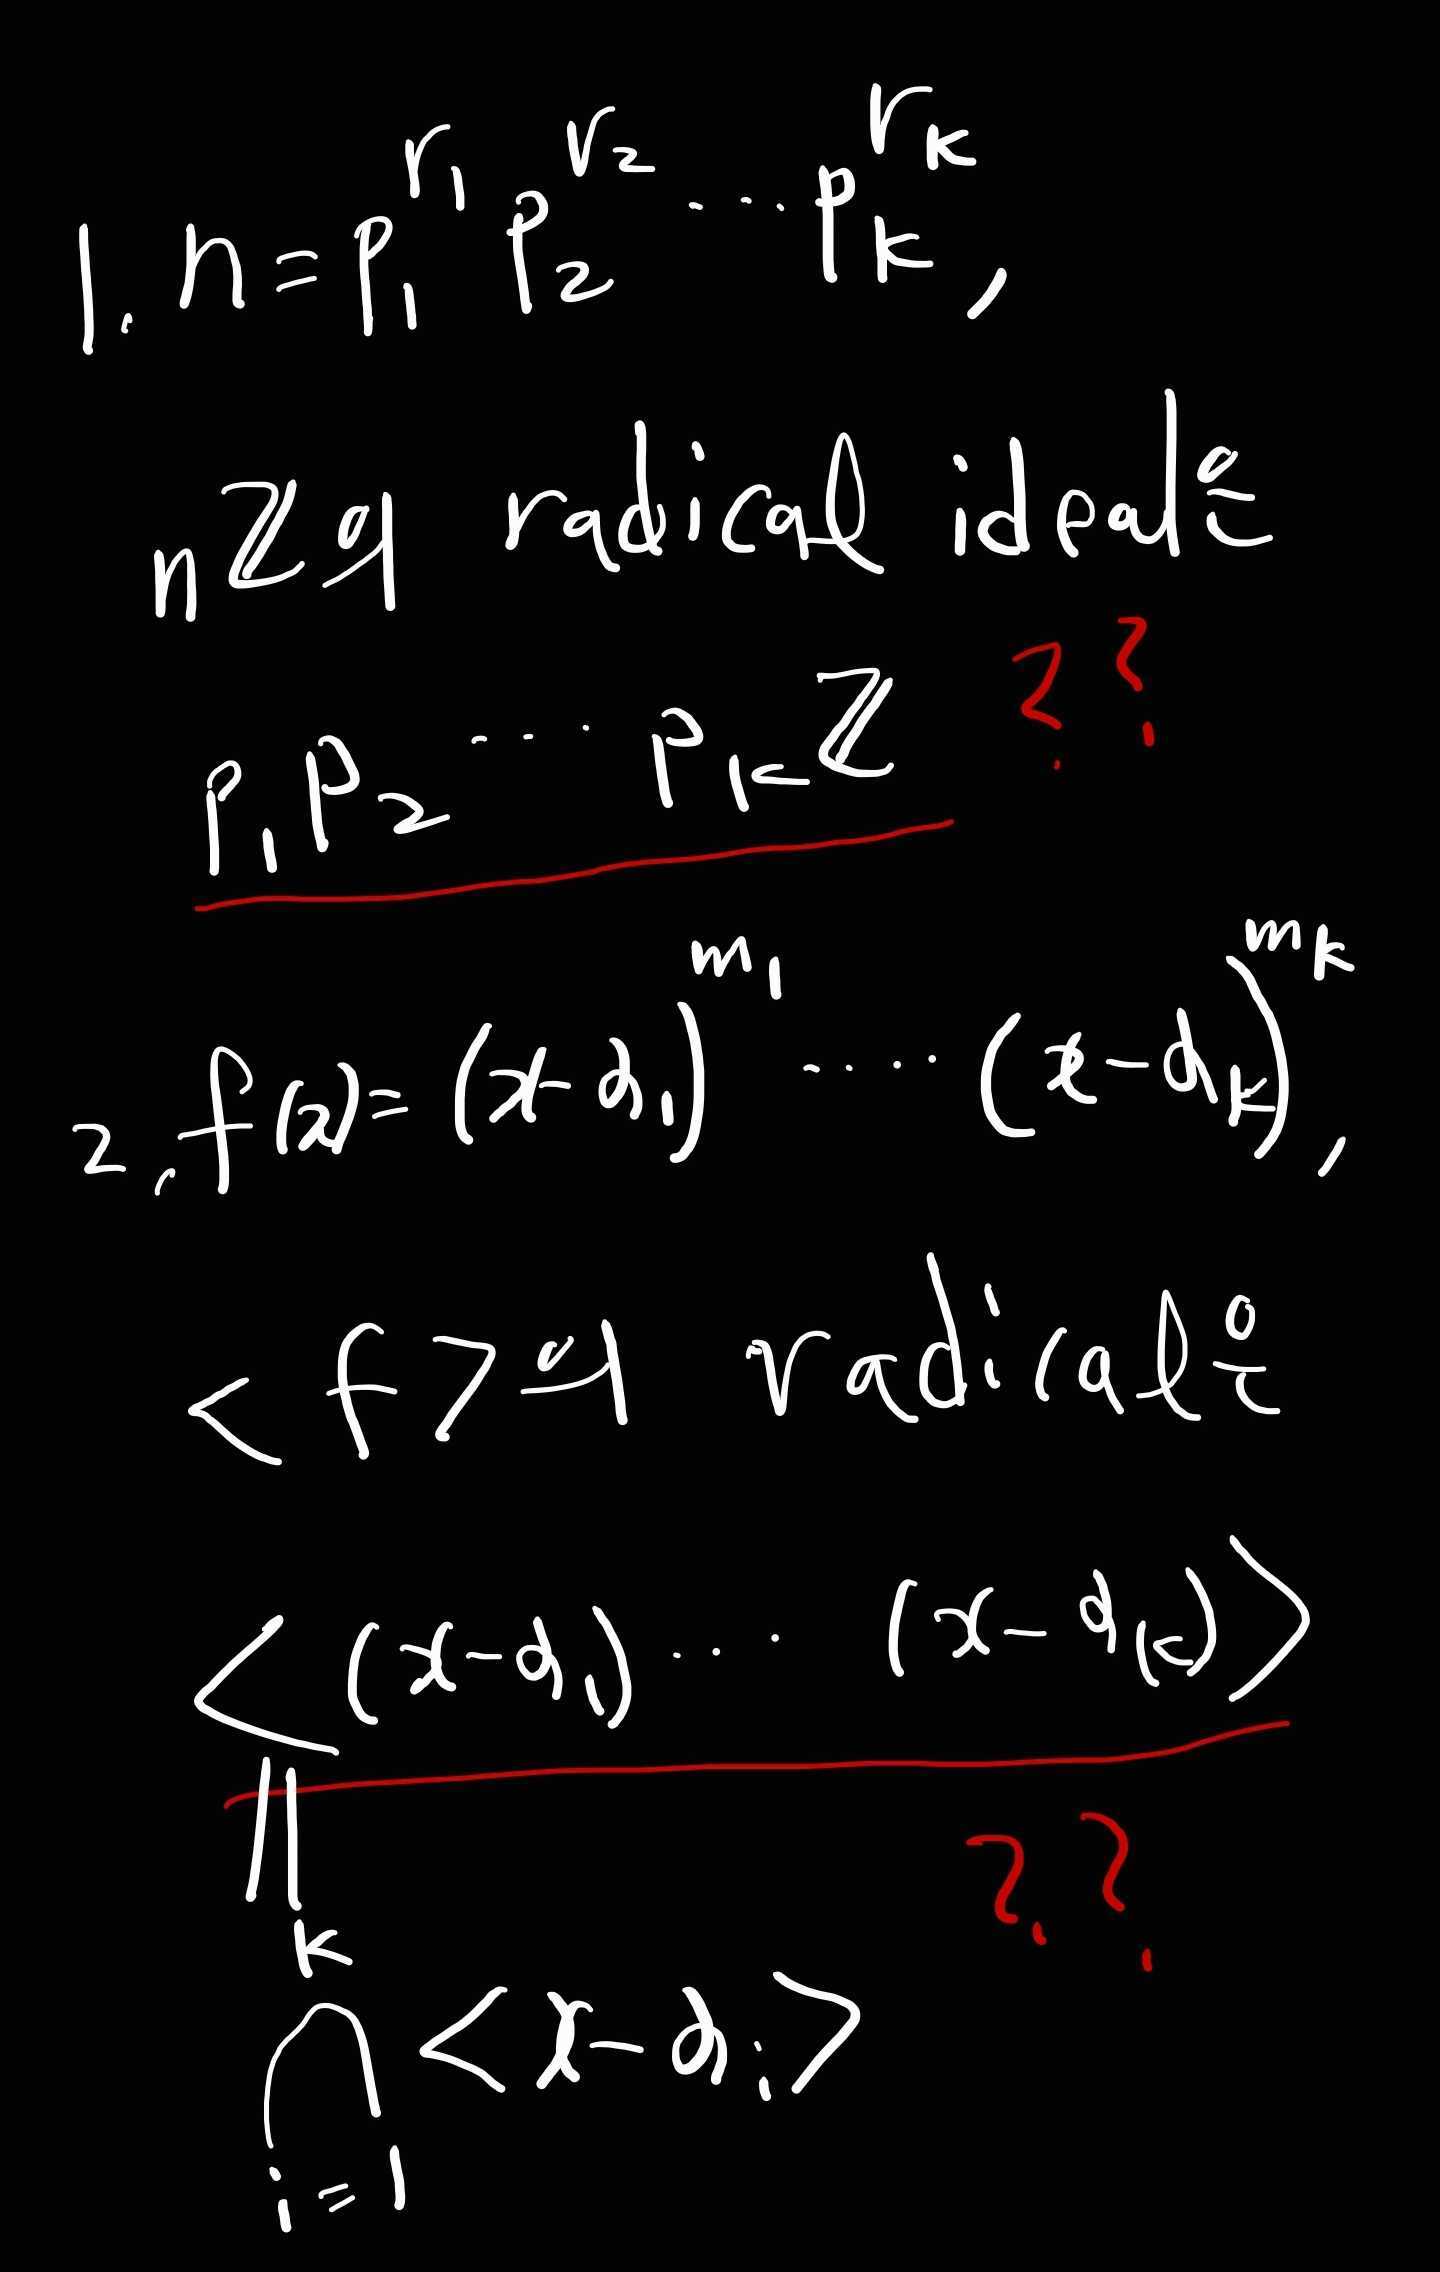 1. n = p₁^r₁ p₂^r₂ ... p_k^r_k,
nℤ의 radical ideal은
p₁p₂ ... p_kℤ ??
2. f(x) = (x-α₁)^m₁ .... (x-α_k)^m_k,
<f>의 radical은
<(x-α₁) ... (x-α_k)>
|| ??
k
∩ <x-α_i>
i=1